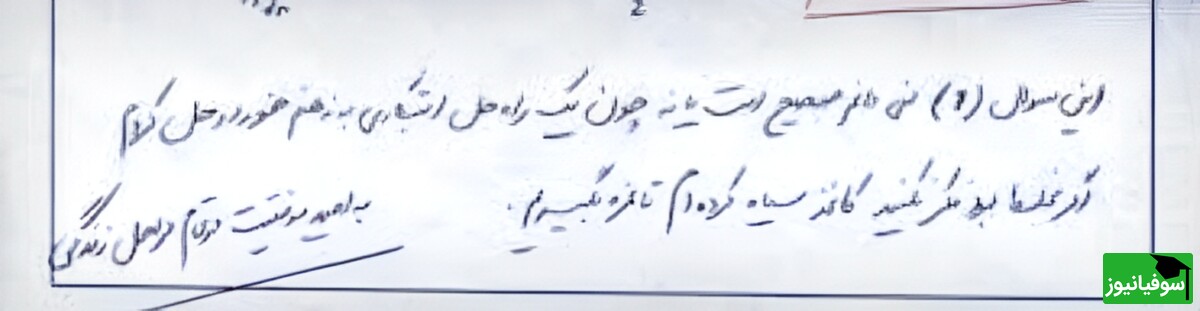 این سوال (1) نمی دانم صحیح است یا نه چون یک راه حل ابتکاری به ذهنم خورد و حل کردم
اگر غلط بود فکر نکنید کاغذ سیاه کرده ام تا نمره بگیرم.
به امید موفقیت در تمام مراحل زندگی
سوفیانیوز